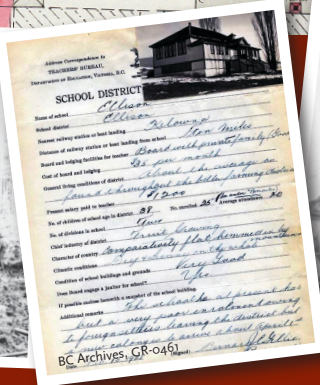 Address Correspondence to
TEACHERS' BUREAU,
DEPARTMENT OF EDUCATION, VICTORIA, B.C.
SCHOOL DISTRICT
Name of school Ellison
School district Ellison
Nearest railway station or boat landing Kelowna
Distance of railway station or boat landing from school Ten Miles
Board and lodging facilities for teacher Board with private family
Cost of board and lodging $35 per month
General living conditions of district About the average as
found throughout the
Present salary paid to teacher $1200
No. of children of school age in district 38 No. enrolled 25 Average attendance 20
No. of divisions in school Two
Chief industry of district Fruit Growing
Character of country Comparatively flat hemmed in by
Climatic conditions Dry
Condition of school buildings and grounds Very Good
Does Board engage a janitor for school? Yes
If possible enclose herewith a snapshot of the school building.
Additional remarks The school has at present
but a very poor enrolment owing
to foreign settlers leaving the district but
new
Date (Signed)
BC Archives, GR-0461